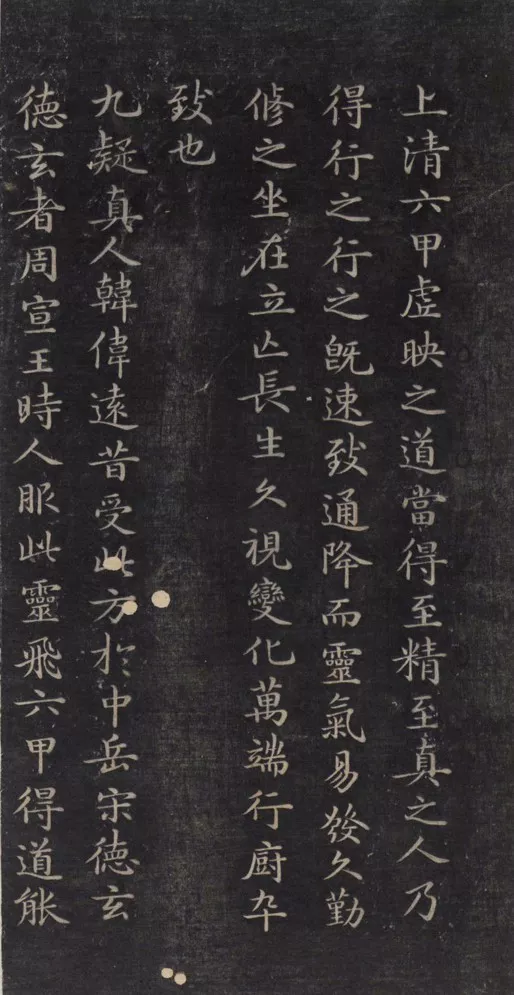 上清六甲虛映之道當得至精至真之人乃
得行之行之既速致通降而靈氣易發久勤
修之坐在立亡長生久視變化萬端行廚卒
致也
九疑真人韓偉遠昔受此方於中岳宋德玄
德玄者周宣王時人服此靈飛六甲得道能